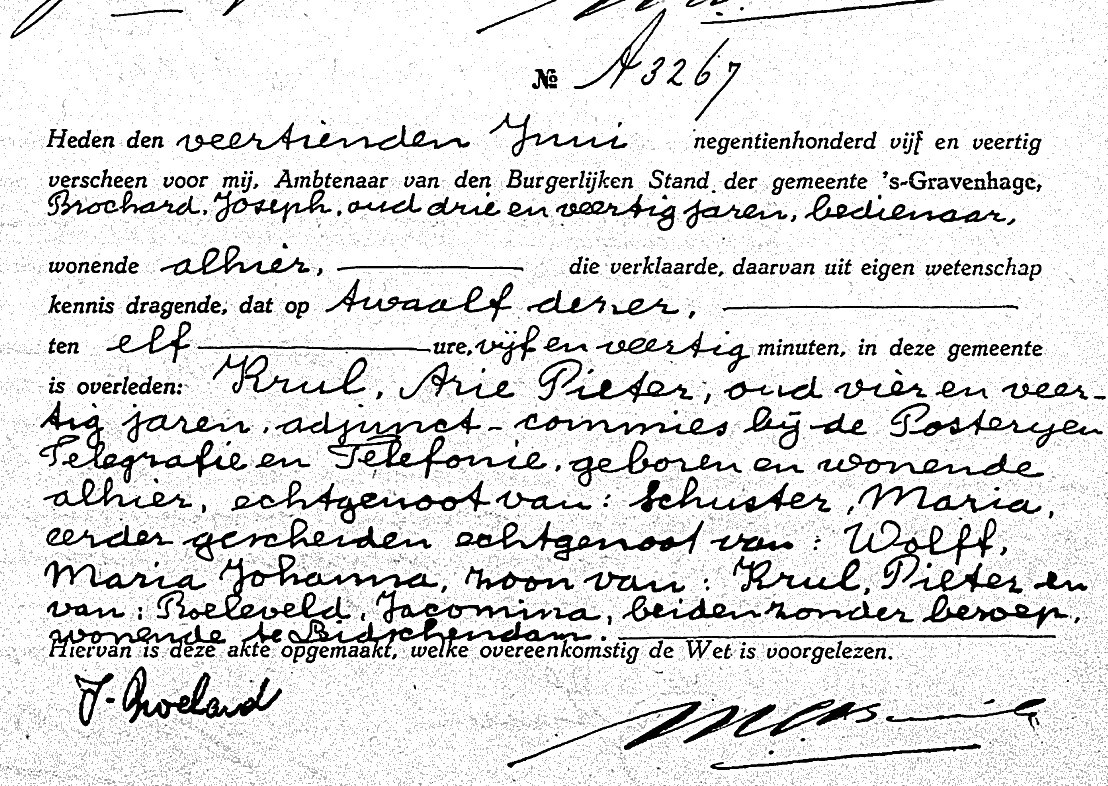 № A3267
Heden den veertienden Juni negentienhonderd vijf en veertig
verscheen voor mij, Ambtenaar van den Burgerlijken Stand der gemeente 's-Gravenhage,
Brochard, Joseph, oud drie en veertig jaren, bedienaar,
wonende alhier, die verklaarde, daarvan uit eigen wetenschap
kennis dragende, dat op twaalf dezer,
ten elf ure, vijf en veertig minuten, in deze gemeente
is overleden: Krul, Arie Pieter, oud vier en veer-
tig jaren, adjunct-commies bij de Posteryen
Telegrafie en Telefonie, geboren en wonende
alhier, echtgenoot van: Schuster, Maria,
eerder gescheiden echtgenoot van: Wolff,
Maria Johanna, zoon van: Krul, Pieter en
van: Roeleveld, Jacomina, beiden zonder beroep,
wonende te Leidschendam.
Hiervan is deze akte opgemaakt, welke overeenkomstig de Wet is voorgelezen.